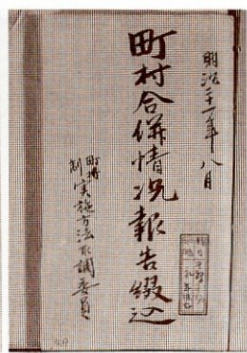 明治二十一年八月
町村合併情況報告綴込
町村制実施方法取調委員